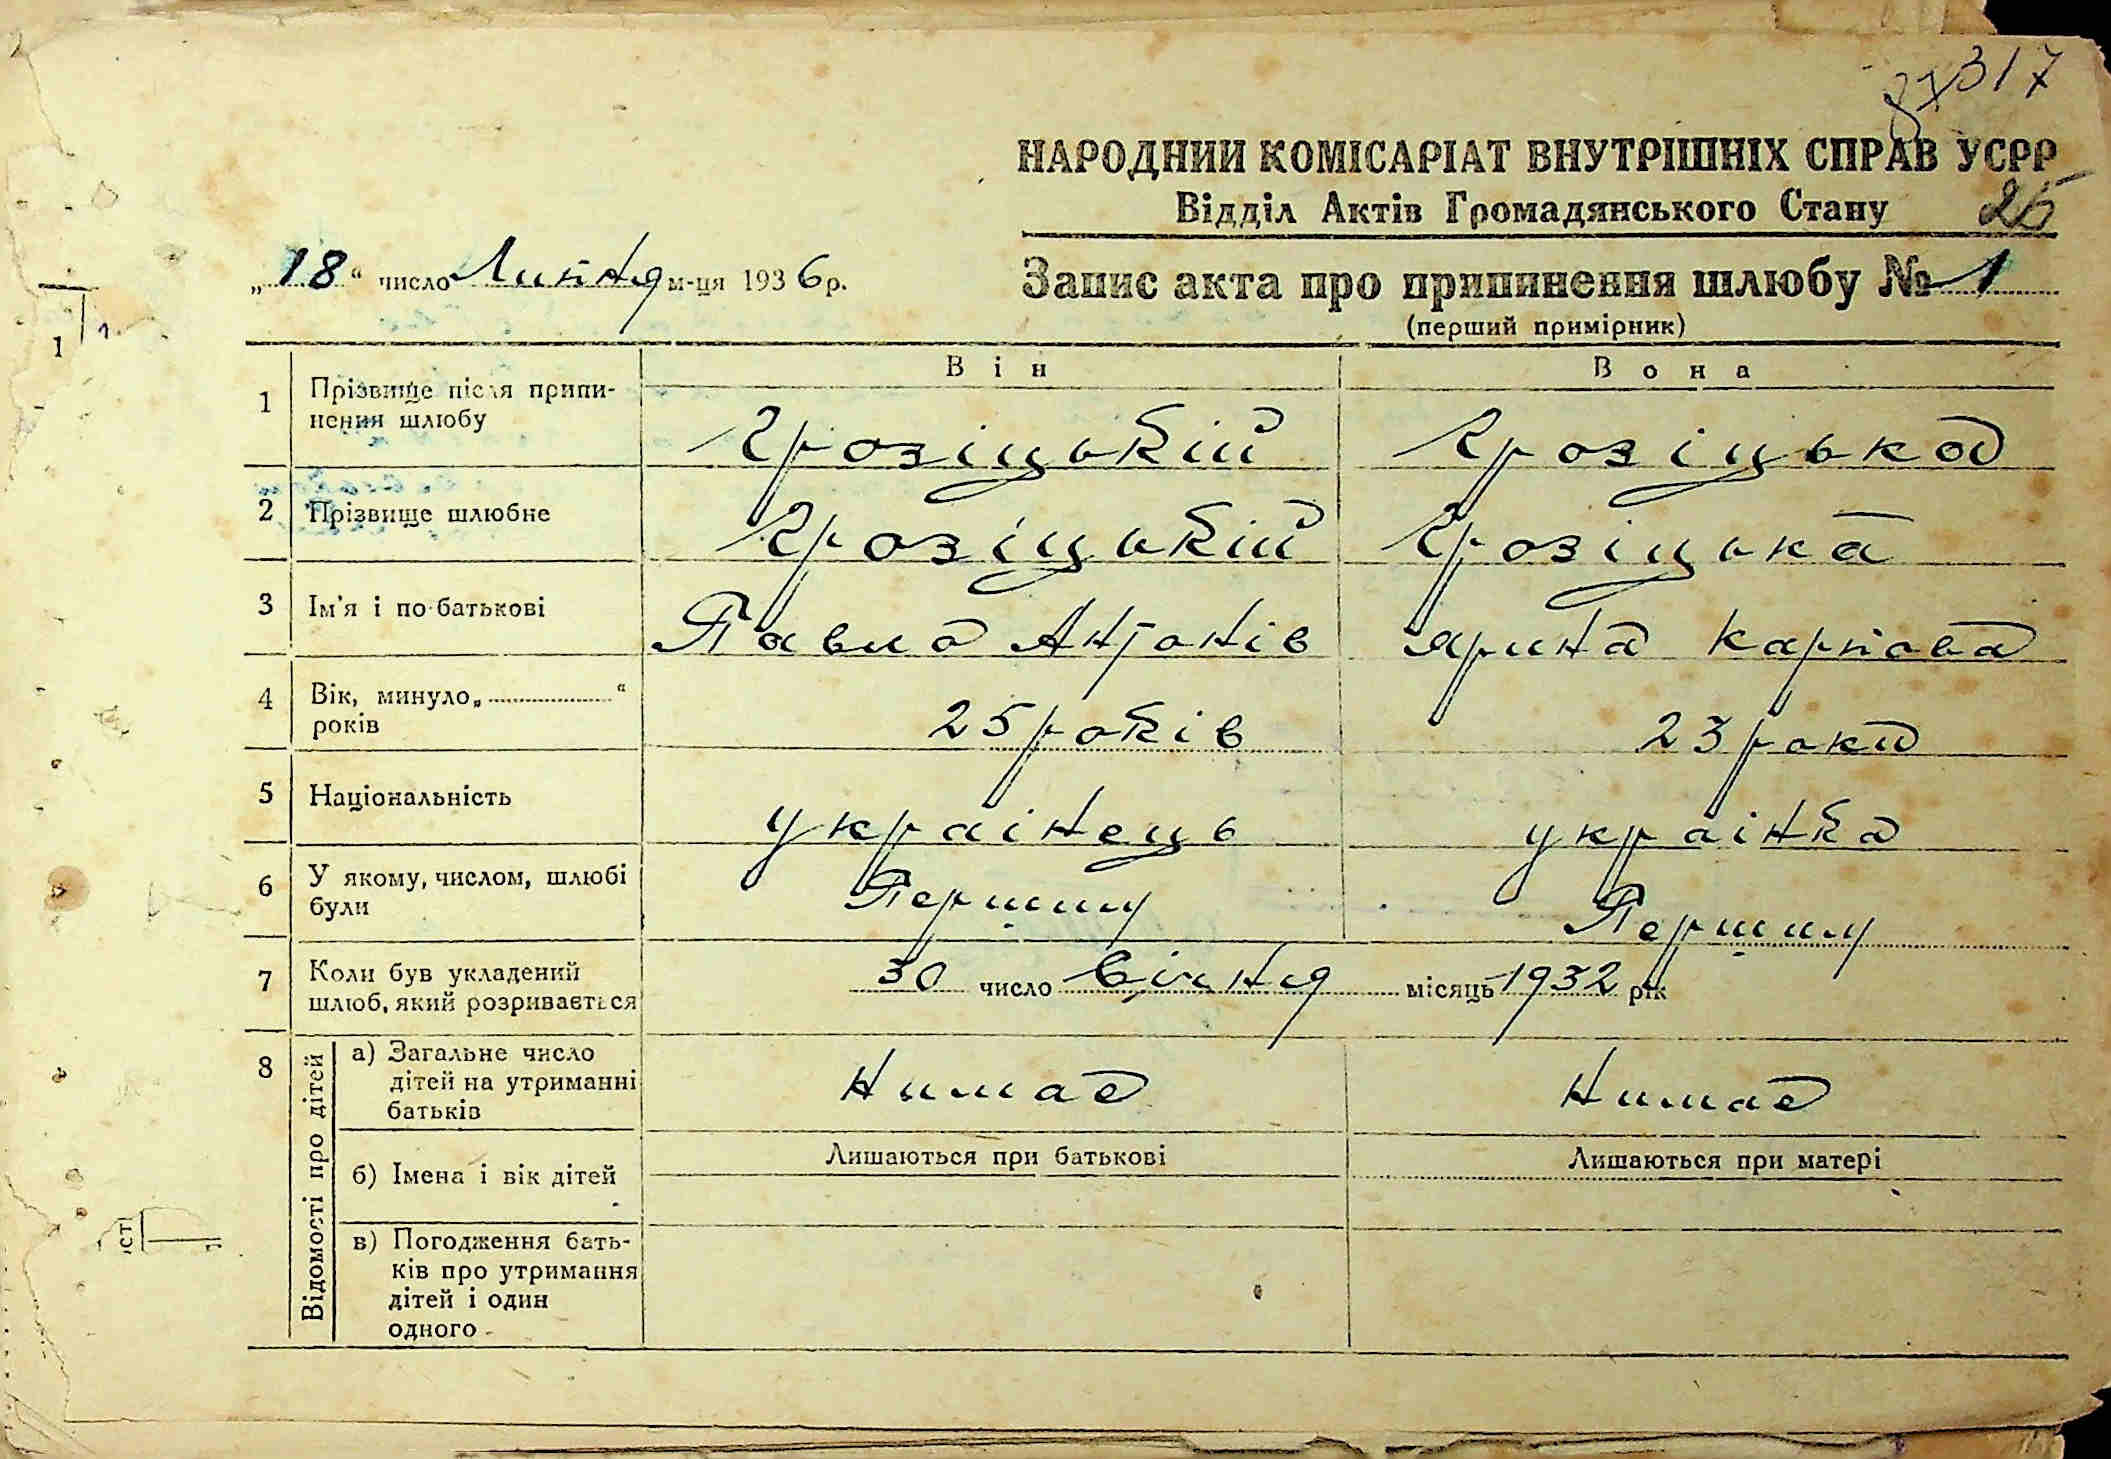 317
37
НАРОДНИЙ КОМІСАРІАТ ВНУТРІШНІХ СПРАВ УСРР
Відділ Актів Громадянського Стану
26
„18“ число Липня м-ця 1936 р.
Запис акта про припинення шлюбу № 1
(перший примірник)
Він Вона
1 Прізвище після припинення шлюбу Грозіцький Грозіцькоа
2 Прізвище шлюбне Грозіцький Грозіцька
3 Ім'я і по-батькові Павло Антонів Ярина Карпова
4 Вік, минуло „ “ років 25 років 23 роки
5 Національність українець українка
6 У якому, числом, шлюбі були Першим Першим
7 Коли був укладений шлюб, який розривається 30 число Січня місяць 1932 рік
8 Відомості про дітей
а) Загальне число дітей на утриманні батьків Нимає Нимає
б) Імена і вік дітей Лишаються при батькові Лишаються при матері
в) Погодження батьків про утримання дітей і один одного